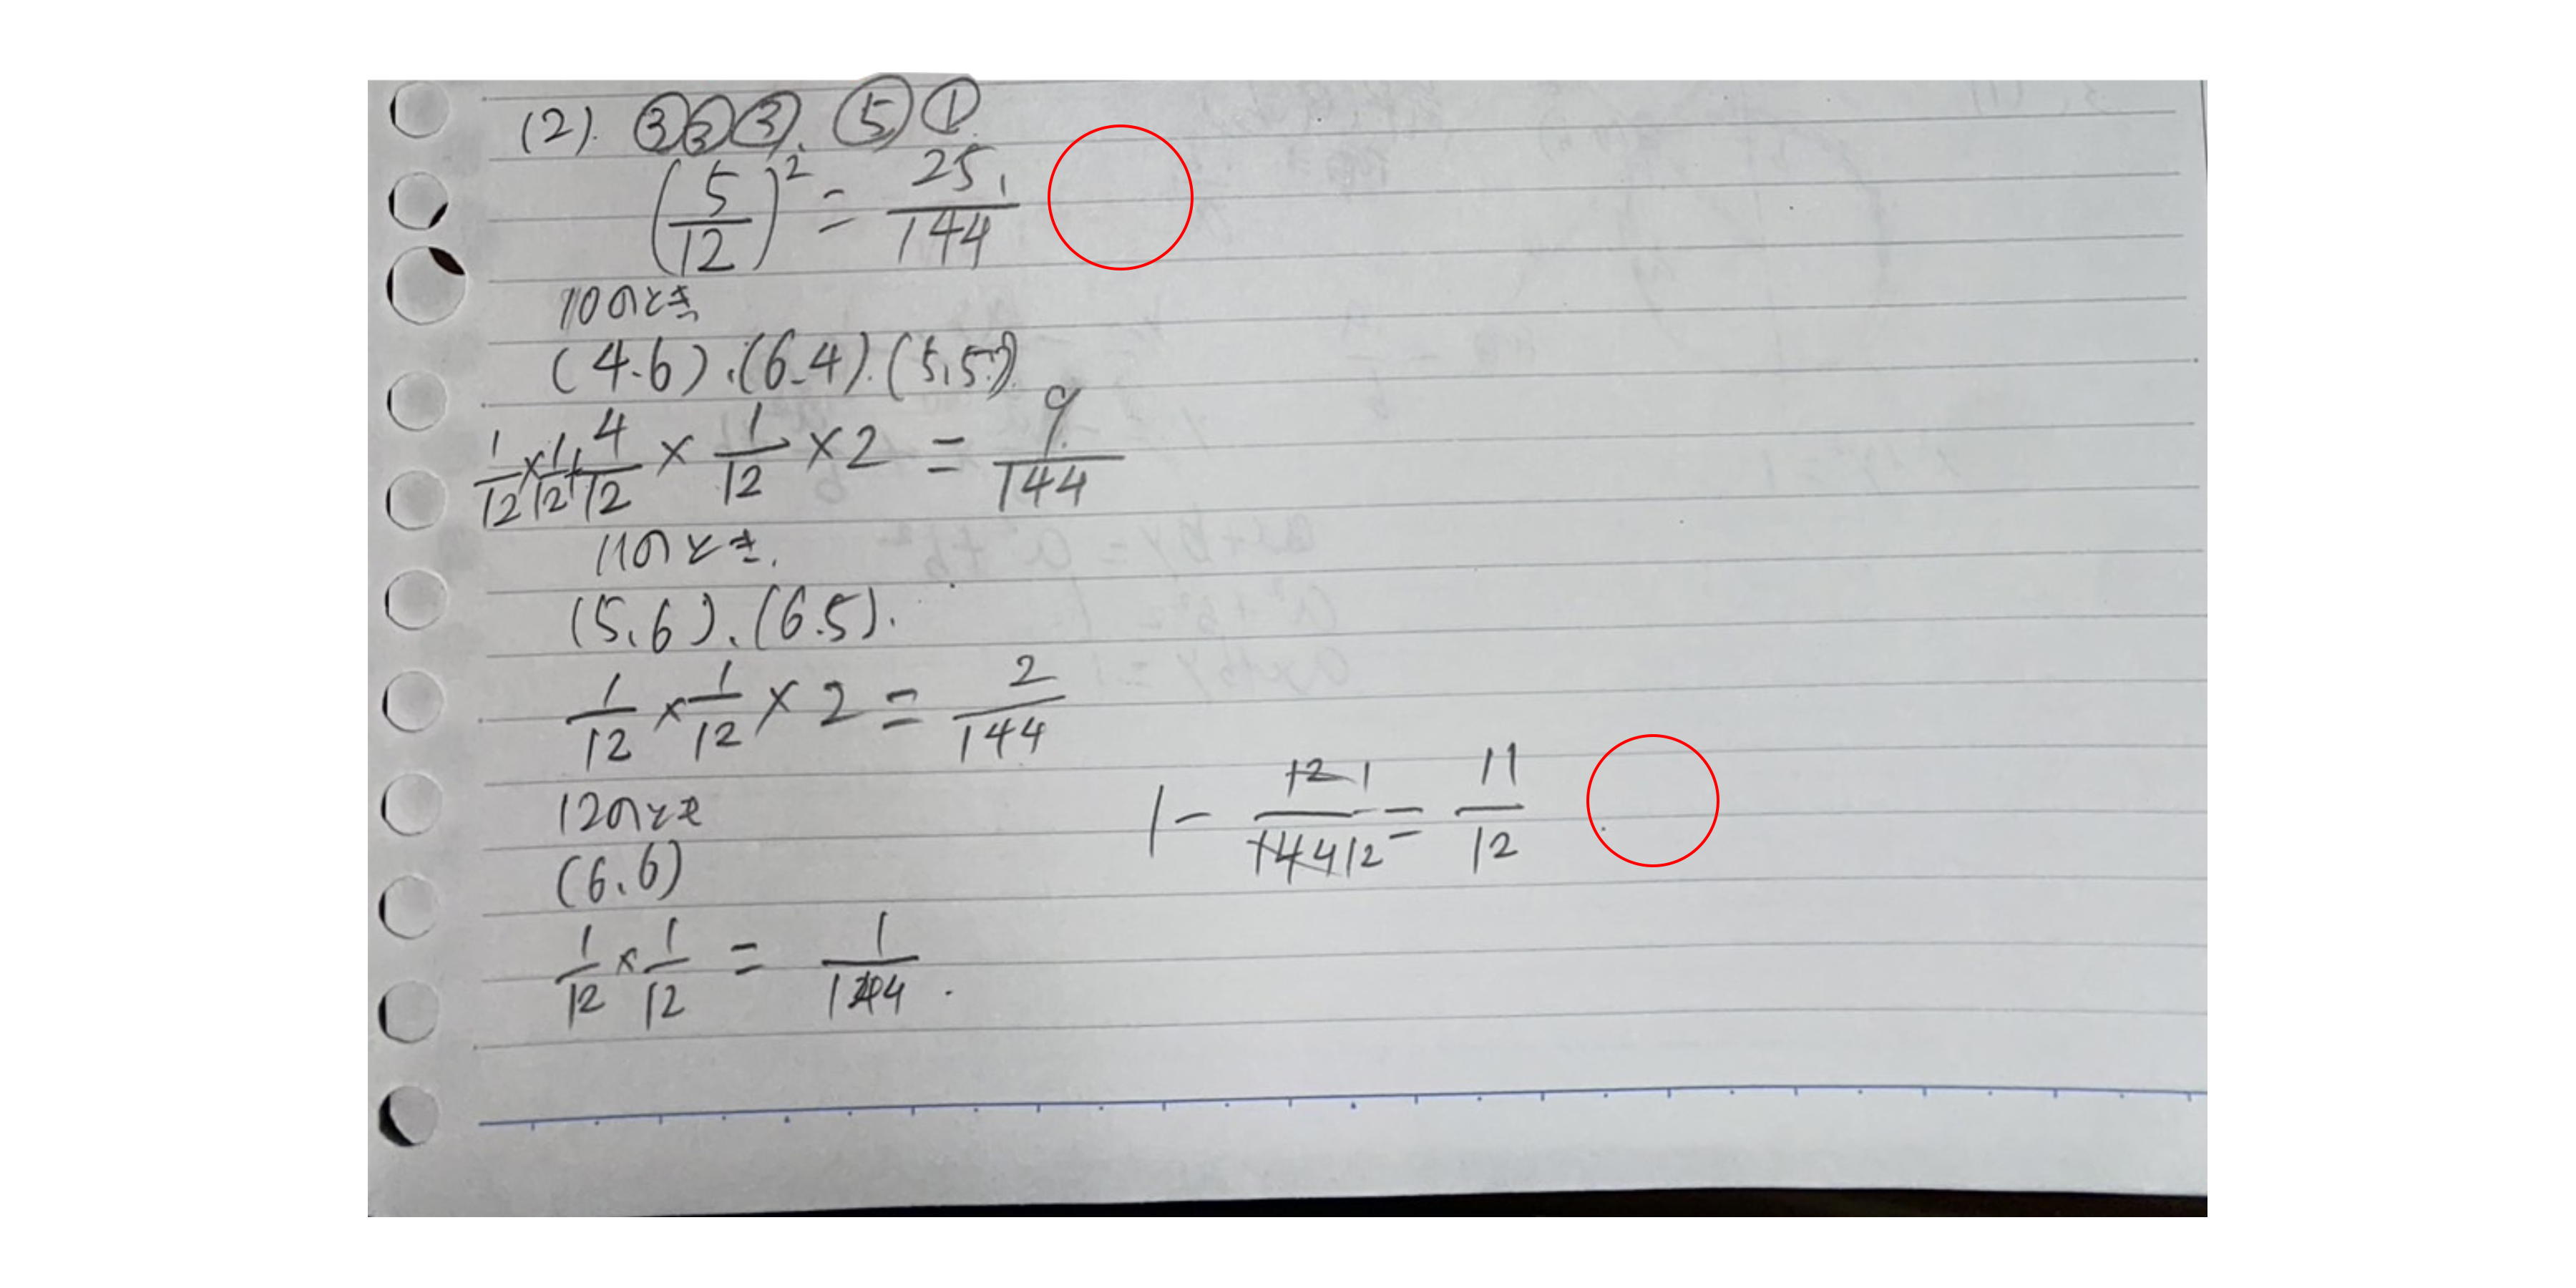 (2). ③③③. ⑤①
(5/12)² = 25/144
10のとき
(4.6).(6.4).(5,5)
1/12×1/12+4/12 × 1/12 ×2 = 9/144
11のとき.
(5,6).(6.5).
1/12 × 1/12 × 2 = 2/144
12のとき
(6,6)
1/12 × 1/12 = 1/144.
1 - 12/144 1/12 = 11/12